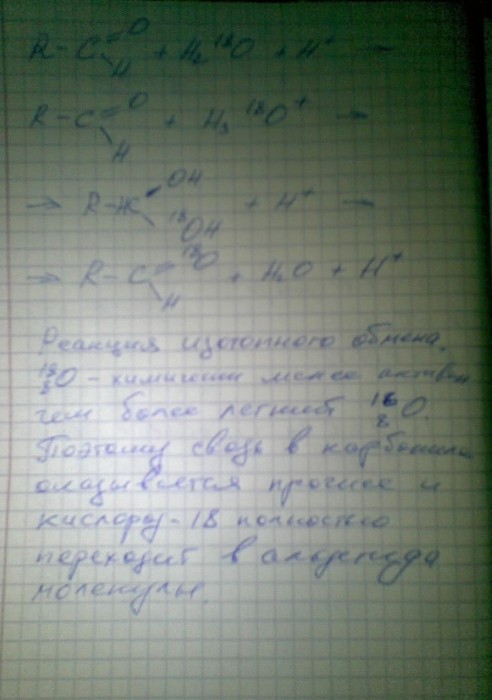 R-C=O H + H₂¹⁸O + H⁺ —
R-C=O H + H₃¹⁸O⁺ →
→ R-HC OH ¹⁸OH + H⁺ —
→ R-C=¹⁸O H + H₂O + H⁺
Реакция изотопного обмена.
¹⁸₈O - химически менее активен
чем более легкий ¹⁶₈O.
Поэтому связь в карбониле
оказывается прочнее и
кислород-18 полностью
переходит в альдегида
молекулы.